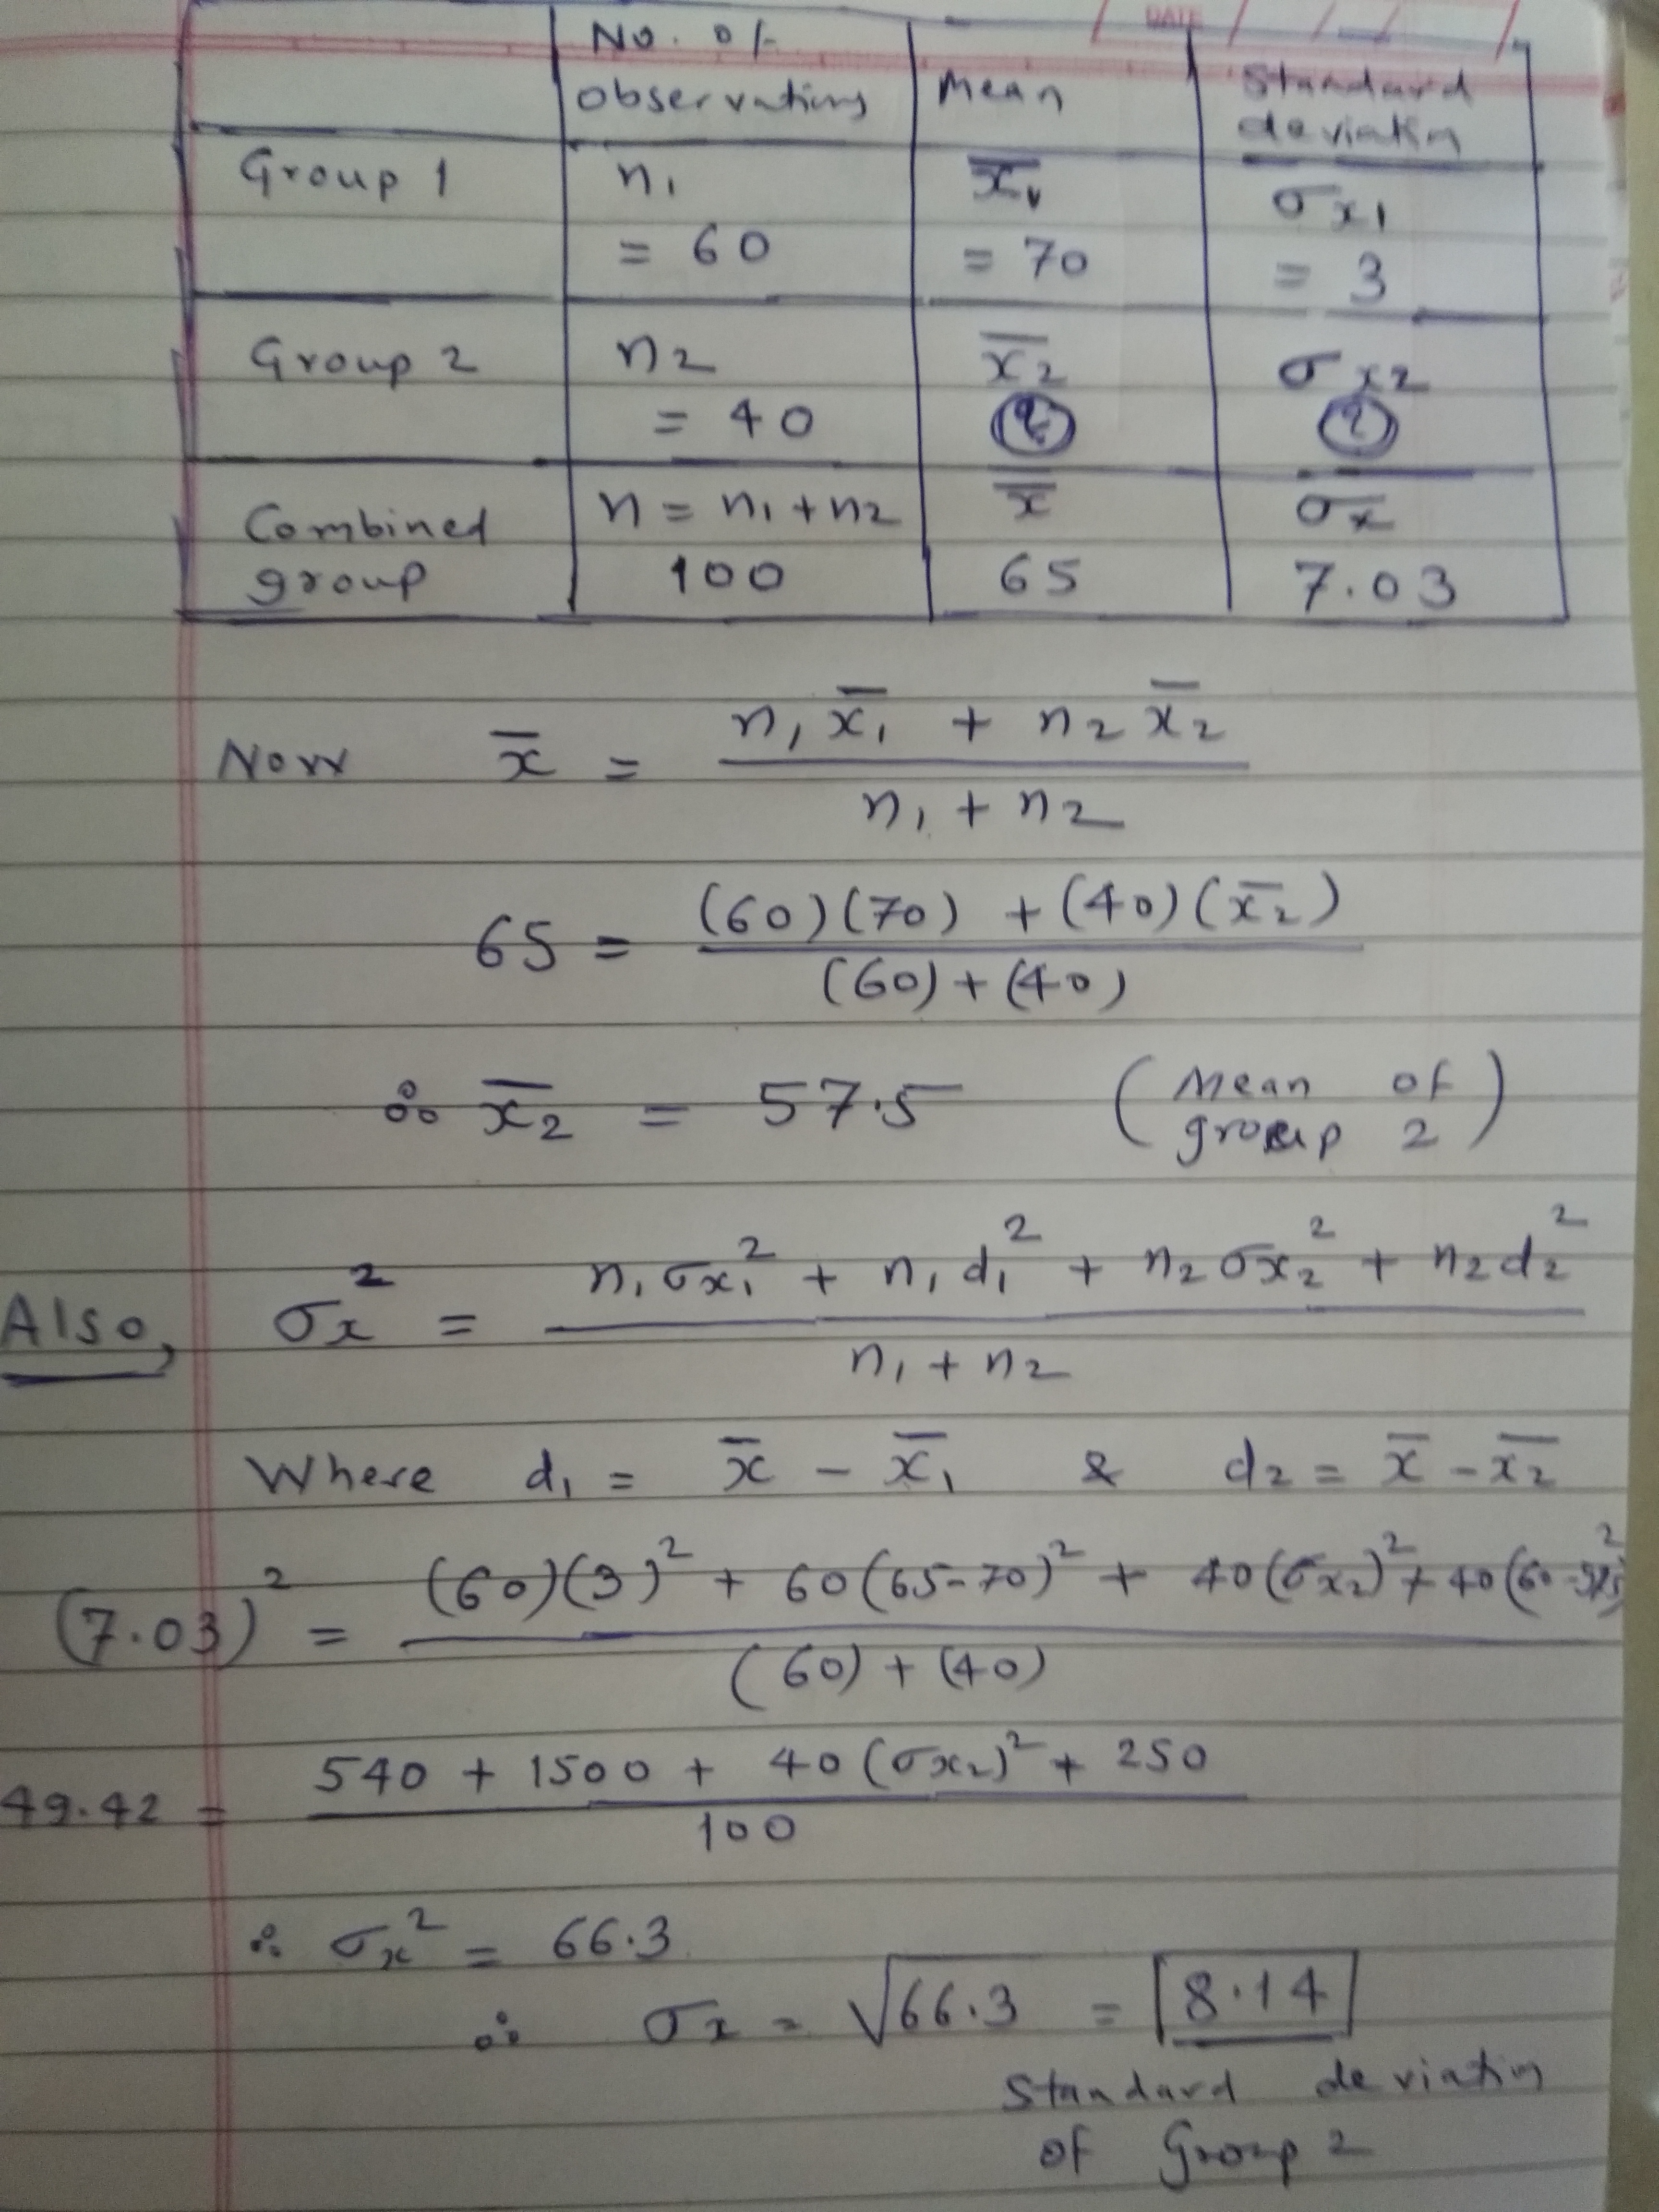 DATE
No. of observations | Mean | Standard deviation
Group 1 | n₁ = 60 | x̄₁ = 70 | σx₁ = 3
Group 2 | n₂ = 40 | x̄₂ ? | σx₂ ?
Combined group | n = n₁ + n₂ 100 | x̄ 65 | σx 7.03
Now x̄ = (n₁x̄₁ + n₂x̄₂) / (n₁ + n₂)
65 = ((60)(70) + (40)(x̄₂)) / ((60) + (40))
∴ x̄₂ = 57.5 (Mean of group 2)
Also, σx² = (n₁σx₁² + n₁d₁² + n₂σx₂² + n₂d₂²) / (n₁ + n₂)
Where d₁ = x̄ - x̄₁ & d₂ = x̄ - x̄₂
(7.03)² = ((60)(3)² + 60(65-70)² + 40(σx₂)² + 40(60-57.5)²) / ((60) + (40))
49.42 = (540 + 1500 + 40(σx₂)² + 250) / 100
∴ σx² = 66.3
∴ σx = √66.3 = 8.14
Standard deviation
of Group 2